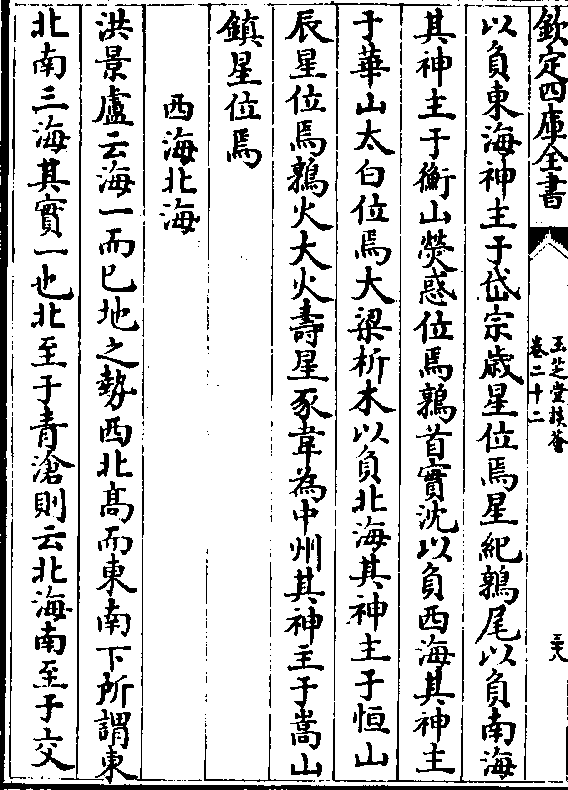 欽定四庫全書
玉芝堂談薈
卷二十二
以負東海神主于岱宗歳星位焉星紀鶉尾以負南海
其神主于衡山熒惑位焉鶉首實沈以負西海其神主
于華山太白位焉大梁析木以負北海其神主于恒山
辰星位焉鶉火大火壽星豕韋為中州其神主于嵩山
鎮星位焉
西海北海
洪景盧云海一而已地之勢西北髙而東南下所謂東
北南三海其實一也北至于青滄則云北海南至于交